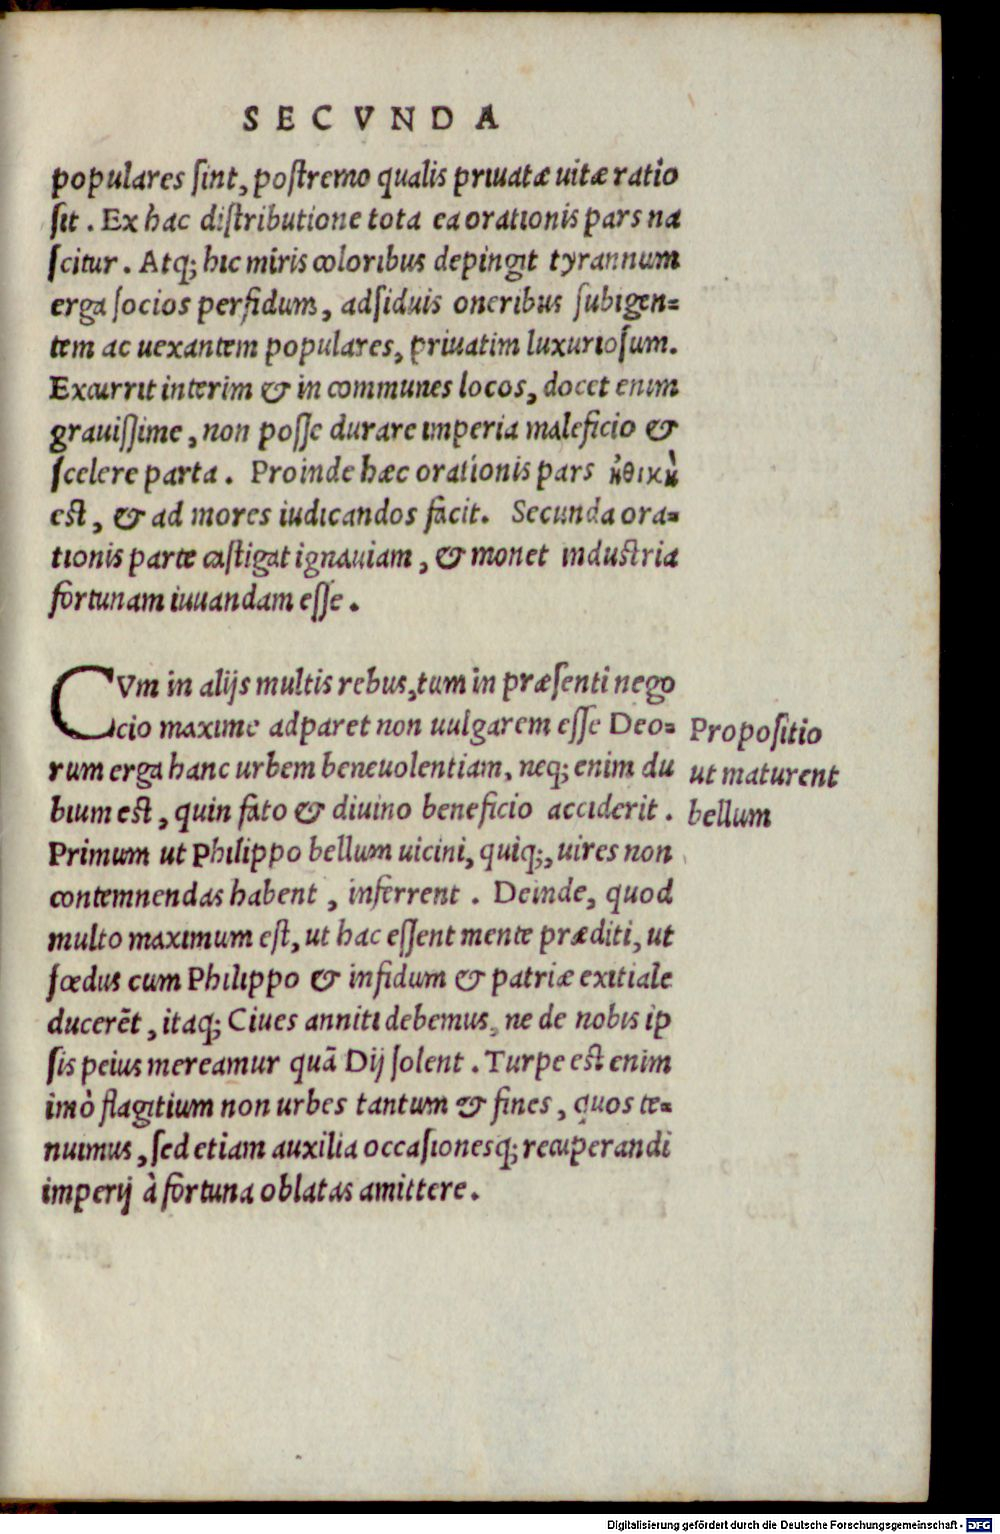 SECVNDA
populares sint, postremo qualis priuatæ uitæ ratio
sit. Ex hac distributione tota ea orationis pars na
scitur. Atq; hic miris coloribus depingit tyrannum
erga socios perfidum, adsiduis oneribus subigen=
tem ac uexantem populares, priuatim luxuriosum.
Excurrit interim & in communes locos, docet enim
grauissime, non posse durare imperia maleficio &
scelere parta. Proinde hæc orationis pars ἠθικὴ
est, & ad mores iudicandos facit. Secunda ora=
tionis parte castigat ignauiam, & monet industria
fortunam iuuandam esse.
CVm in alijs multis rebus, tum in præsenti nego
cio maxime adparet non uulgarem esse Deo=
rum erga hanc urbem beneuolentiam, neq; enim du
bium est, quin fato & diuino beneficio acciderit.
Primum ut Philippo bellum uicini, quiq;, uires non
contemnendas habent, inferrent. Deinde, quod
multo maximum est, ut hac essent mente præditi, ut
fœdus cum Philippo & infidum & patriæ exitiale
ducerēt, itaq; Ciues anniti debemus, ne de nobis ip
sis peius mereamur quā Dij solent. Turpe est enim
imò flagitium non urbes tantum & fines, quos te=
nuimus, sed etiam auxilia occasionesq; recuperandi
imperij à fortuna oblatas amittere.
Propositio
ut maturent
bellum
Digitalisierung gefördert durch die Deutsche Forschungsgemeinschaft - DFG